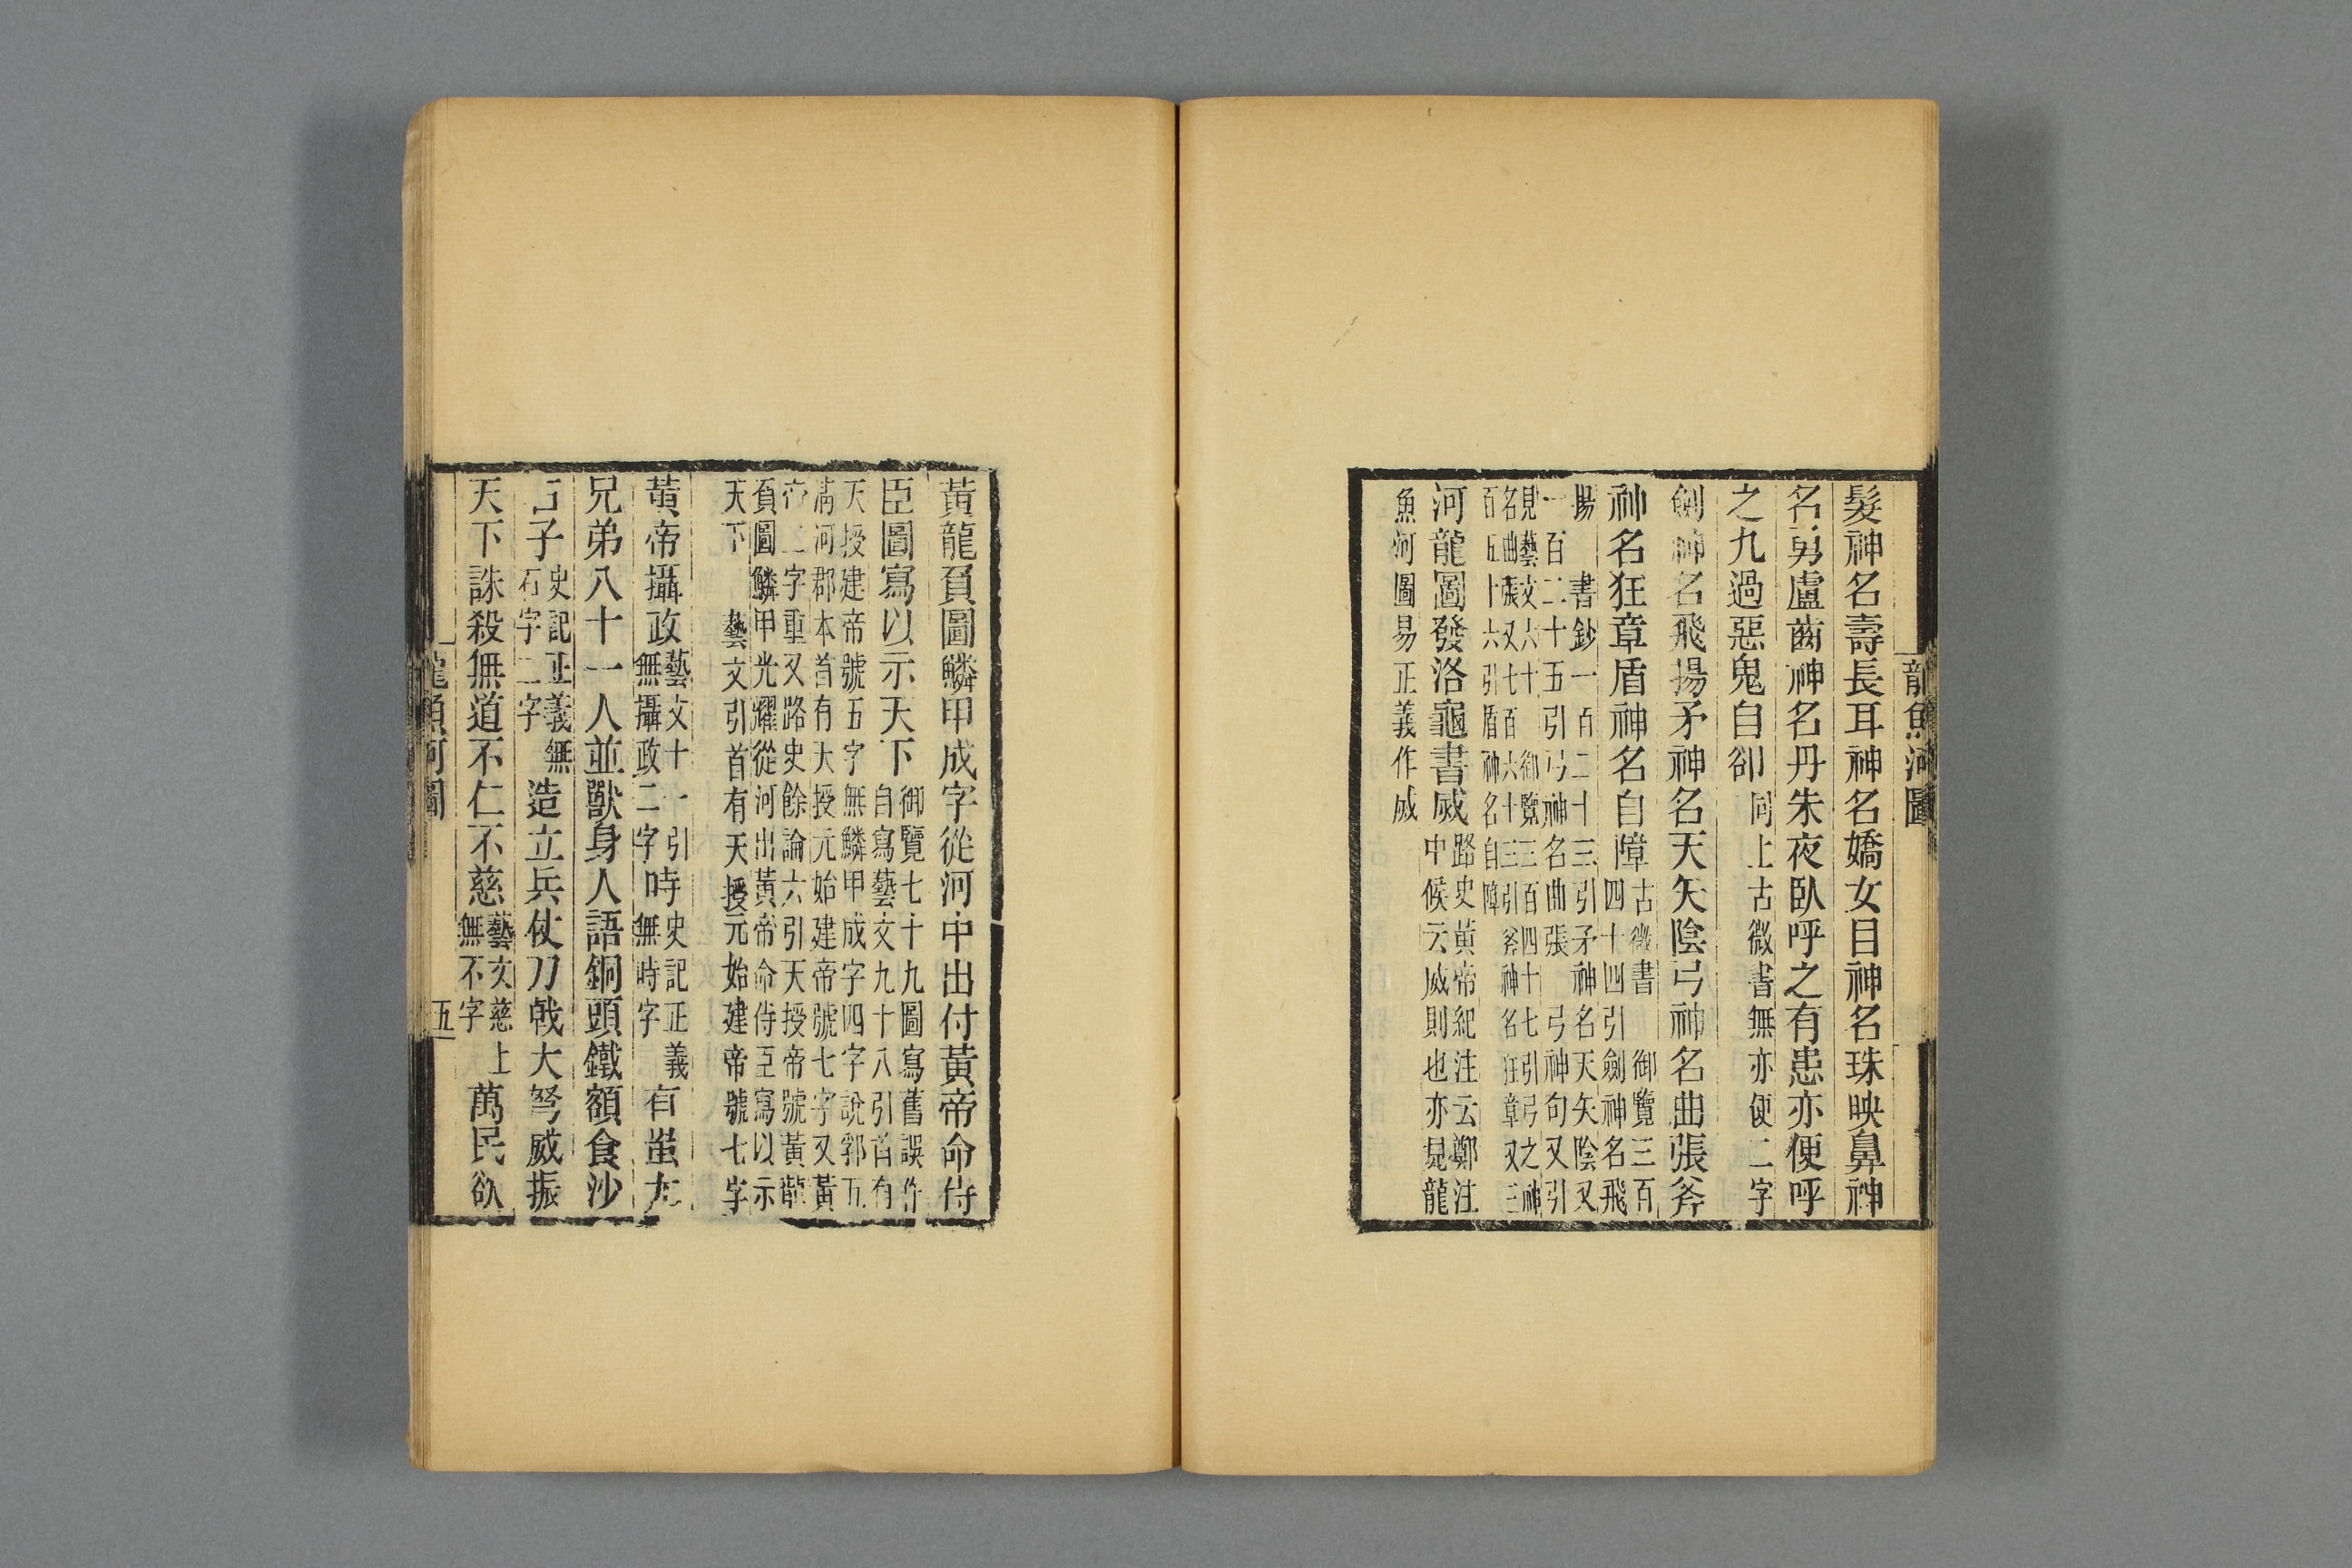 龍魚河圖
髮神名壽長耳神名嬌女目神名珠映鼻神
名勇盧齒神名丹朱夜臥呼之有患亦便呼
之九過惡鬼自卻同上古微書無亦便二字
劍神名飛揚矛神名天矢陰弓神名曲張斧
神名狂章盾神名自障古微書 御覽三百
四十四引劍神名飛
揚 書鈔一百二十三引矛神名天矢陰又
一百二十五引弓神名曲張 弓神句又引
見藝文六十 御覽三百四十七引弓之神
名曲張又七百六十三引斧神名狂章又三
百五十六引盾神名自障
河龍圖發洛龜書威路史黃帝紀注云鄭注
中候云威則也亦見龍
魚河圖易正義作感
黃龍負圖鱗甲成字從河中出付黃帝命侍
臣圖寫以示天下御覽七十九圖寫舊誤作
自寫藝文九十八引首有
天授建帝號五字無鱗甲成字四字說郛五
滿河郡本首有天授元始建帝號七字又黃
帝二字重又路史餘論六引天授帝號黃龍
負圖鱗甲光耀從河出黃帝命侍臣寫以示
天下 藝文引首有天授元始建帝號七字
黃帝攝政藝文十一引
無攝政二字時史記正義
無時字有蚩尤
兄弟八十一人並獸身人語銅頭鐵額食沙
石子史記正義無
石字二字造立兵仗刀戟大弩威振
天下誅殺無道不仁不慈藝文慈上
無不字萬民欲
龍魚河圖
五